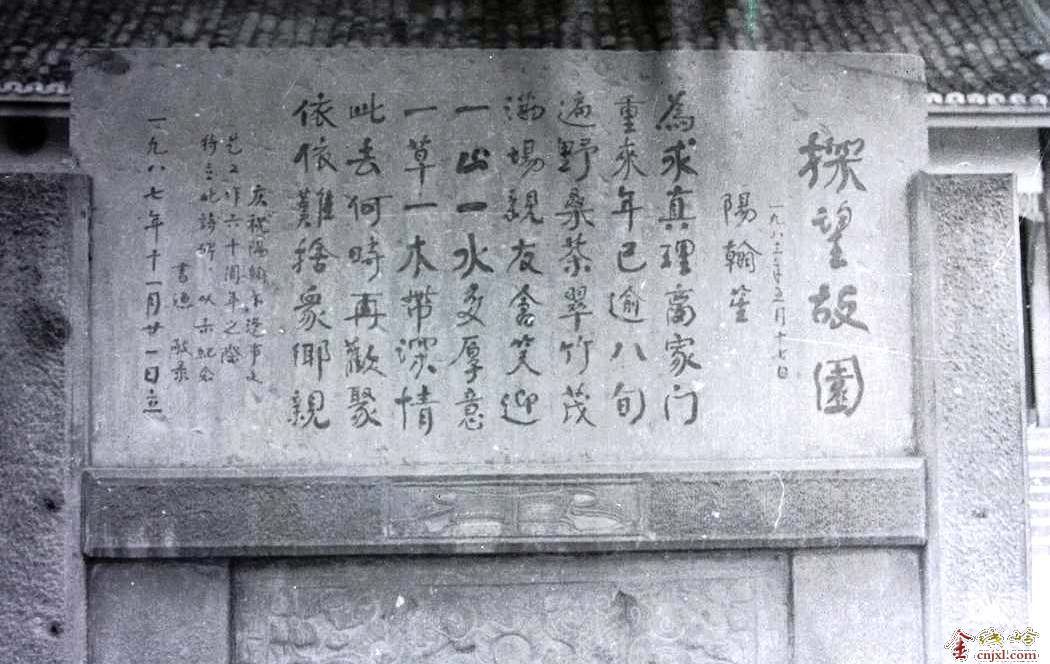 探望故園
一九八三年五月十七日
陽翰笙
為求真理离家门
重來年已逾八旬
遍野桑茶翠竹茂
滿場親友含笑迎
一山一水多厚意
一草一木带深情
此去何時再歡聚
依依難捨眾鄉親
庆祝陽翰笙從事文
艺工作六十周年之際
特立此詩碑，以示纪念
敬录
一九八七年十一月廿一日立
cnjxl.com